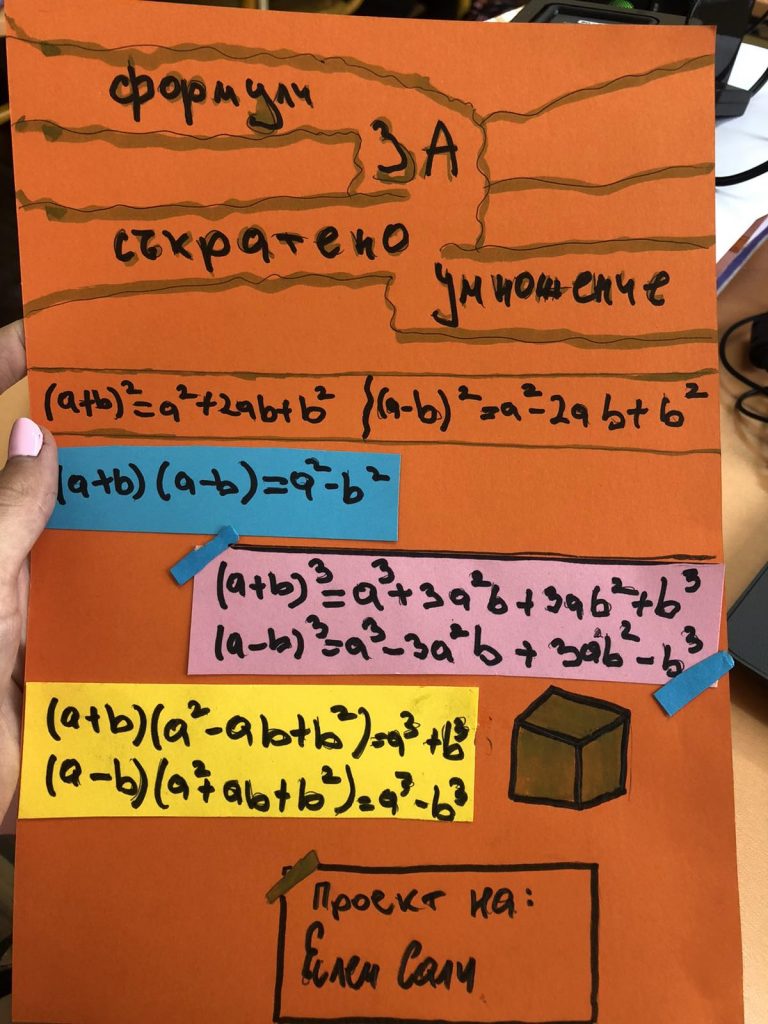 формули
за
съкратено
умножение
(a+b)²=a²+2ab+b² }(a-b)²=a²-2ab+b²
(a+b)(a-b)=a²-b²
(a+b)³=a³+3a²b+3ab²+b³
(a-b)³=a³-3a²b+3ab²-b³
(a+b)(a²-ab+b²)=a³+b³
(a-b)(a²+ab+b²)=a³-b³
Проект на:
Елем Сали